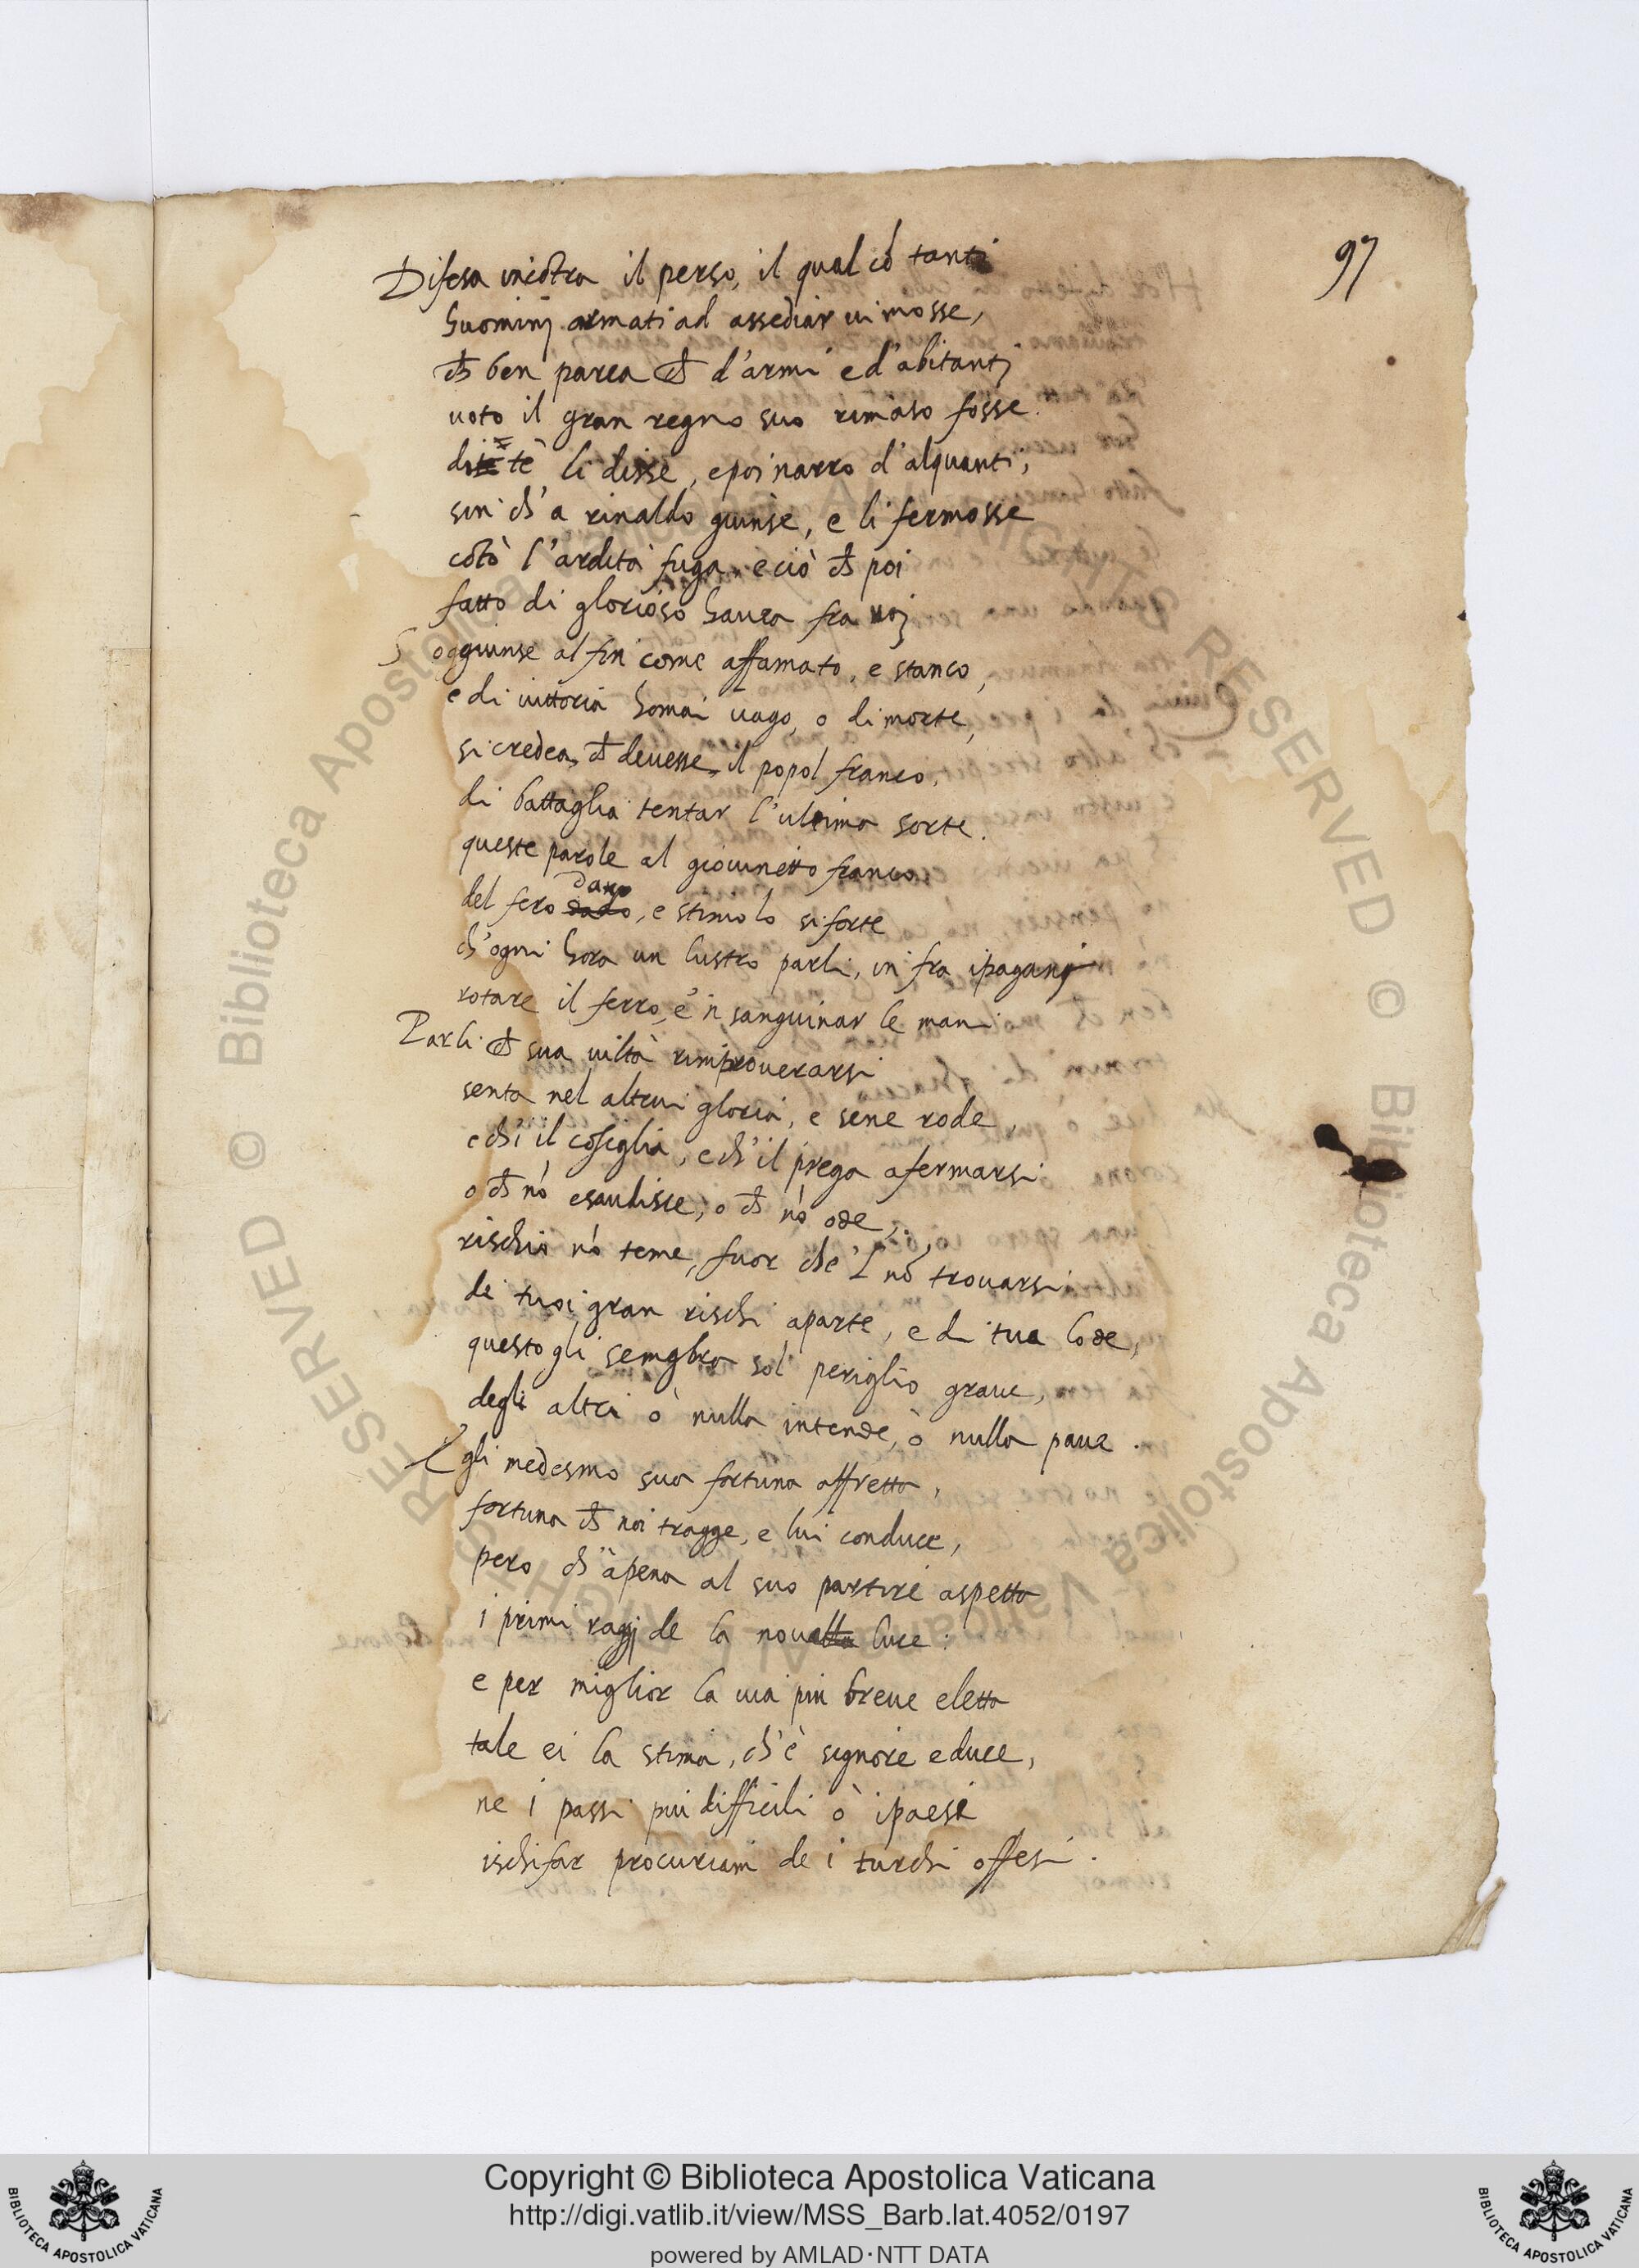 97
Difesa incõtra il perso, il qual cõ tanti
huominj armati ad assediar ui mosse,
ch̃ ben parea ch̃ d'armi e d'abitantj
uoto il gran regno suo rimaso fosse.
di te li disse, e poi narro d'alquanti,
sin ch'a rinaldo giunse, e li fermosse
cõtò l'ardita fuga, e ciò ch̃ poi
fatto di glorioso hauea fra noj
Soggiunse al fin come affamato, e stanco,
e di uittoria homai uago, o di morte,
si credea, ch̃ deuesse, il popol franco,
di battaglia tentar l'ultima sorte.
queste parole al giouinetto franco
del fero dano, e stimolo si forte
ch'ogni hora un lustro parli, in fra i paganj
rotare il ferro, e 'n sanguinar le mani
Parli ch̃ sua uiltà rimprouerarsi
senta nel altrui gloria, e sene rode,
e ch'i il cõsiglia, e ch'il prega a fermarsi
o ch̃ nõ esaudisce, o ch̃ nõ ode,
rischio nõ teme, fuor che 'l nõ trouarsi
de tuoi gran rischi aparte, e di tua lode,
questo gli sembra sol periglio graue,
degli altri ò nulla intende, ò nulla paue.
Egli medesmo sua fortuna affretta,
fortuna ch̃ noi tragge, e lui conduce,
pero ch'àpena al suo partire aspetta
i primi raggj de la nouella luce:
e per miglior la uia piu breue eletta
tale ei la stima, ch'è signore e duce,
ne i passi piu difficili ò i paesi
ischifar procuriam de i turchi offesi.
Copyright © Biblioteca Apostolica Vaticana
http://digi.vatlib.it/view/MSS_Barb.lat.4052/0197
powered by AMLAD·NTT DATA
BIBLIOTECA APOSTOLICA VATICANA
BIBLIOTECA APOSTOLICA VATICANA